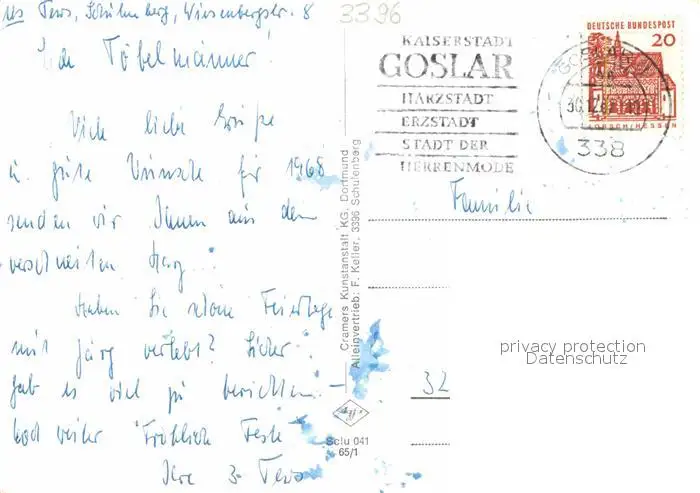 Tews, Schulenberg, Wiesenbergstr. 8
3396
Töbelmänner!
Viele liebe Grüße
u. gute Wünsche für 1968
senden wir Ihnen aus dem
verschneiten Harz.
Haben Sie schöne Feiertage
mit Jörg verlebt? Sicher
gab es viel zu berichten! -
Noch weiter "Fröhliche Feste"
Ihre 3 Tews
Cramers Kunstanstalt KG, Dortmund
Alleinvertrieb: F. Keller, 3396 Schulenberg
Sclu 041
65/1
KAISERSTADT
GOSLAR
HARZSTADT
ERZSTADT
STADT DER
HERRENMODE
GOSLAR
338
DEUTSCHE BUNDESPOST
20
LORSCH/HESSEN
Familie
privacy protection
Datenschutz
32